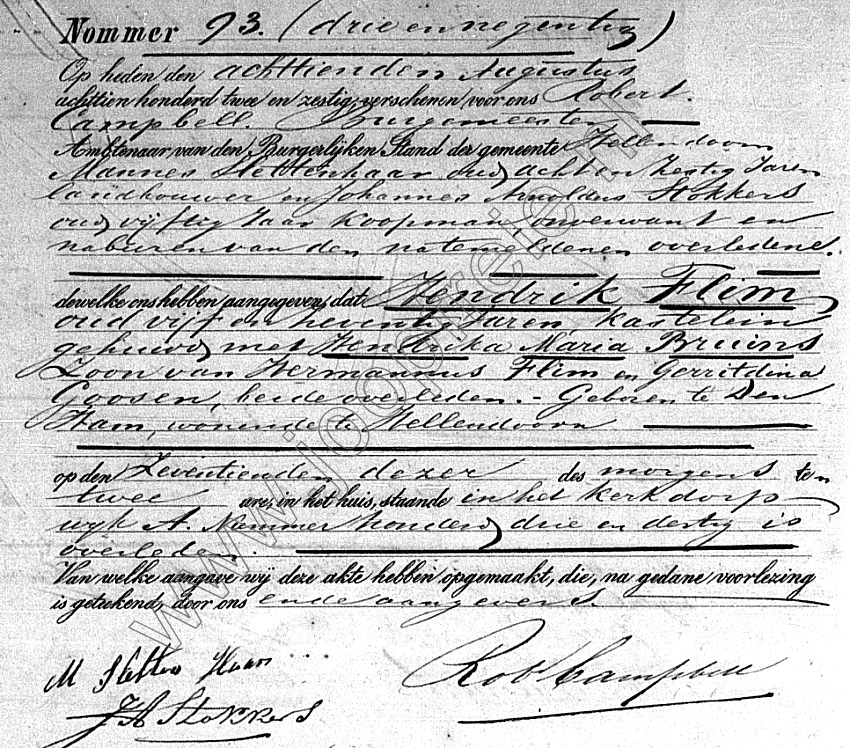 Nommer 93. (drie en negentig)
Op heden den achttienden Augustus
achttien honderd twee en zestig, verschenen voor ons Robert
Campbell. Burgemeester
Ambtenaar van den Burgerlijken Stand der gemeente Hellendoorn
Mannes Slettenhaar oud acht en zestig Jaren
landbouwer en Johannes Arnoldus Stokkers
oud vijftig Jaar Koopman onverwant en
naburen van den natemeldenen overledene.
dewelke ons hebben aangegeven, dat Hendrik Flim
oud vijf en zeventig Jaren, kastelein
gehuwd met Hendrika Maria Bruins
Zoon van Hermannus Flim en Gerritdina
Goosen, beide overleden. - Geboren te Den
Ham, wonende te Hellendoorn
op den Zeventienden dezer des morgens ten
twee ure, in het huis, staande in het kerkdorp
wyk A. Nummer honderd drie en dertig is
overleden.
Van welke aangave wij deze akte hebben opgemaakt, die, na gedane voorlezing
is getekend, door ons ende aangevers.
M Sletten Haar
JA Stokkers
Rob Campbell